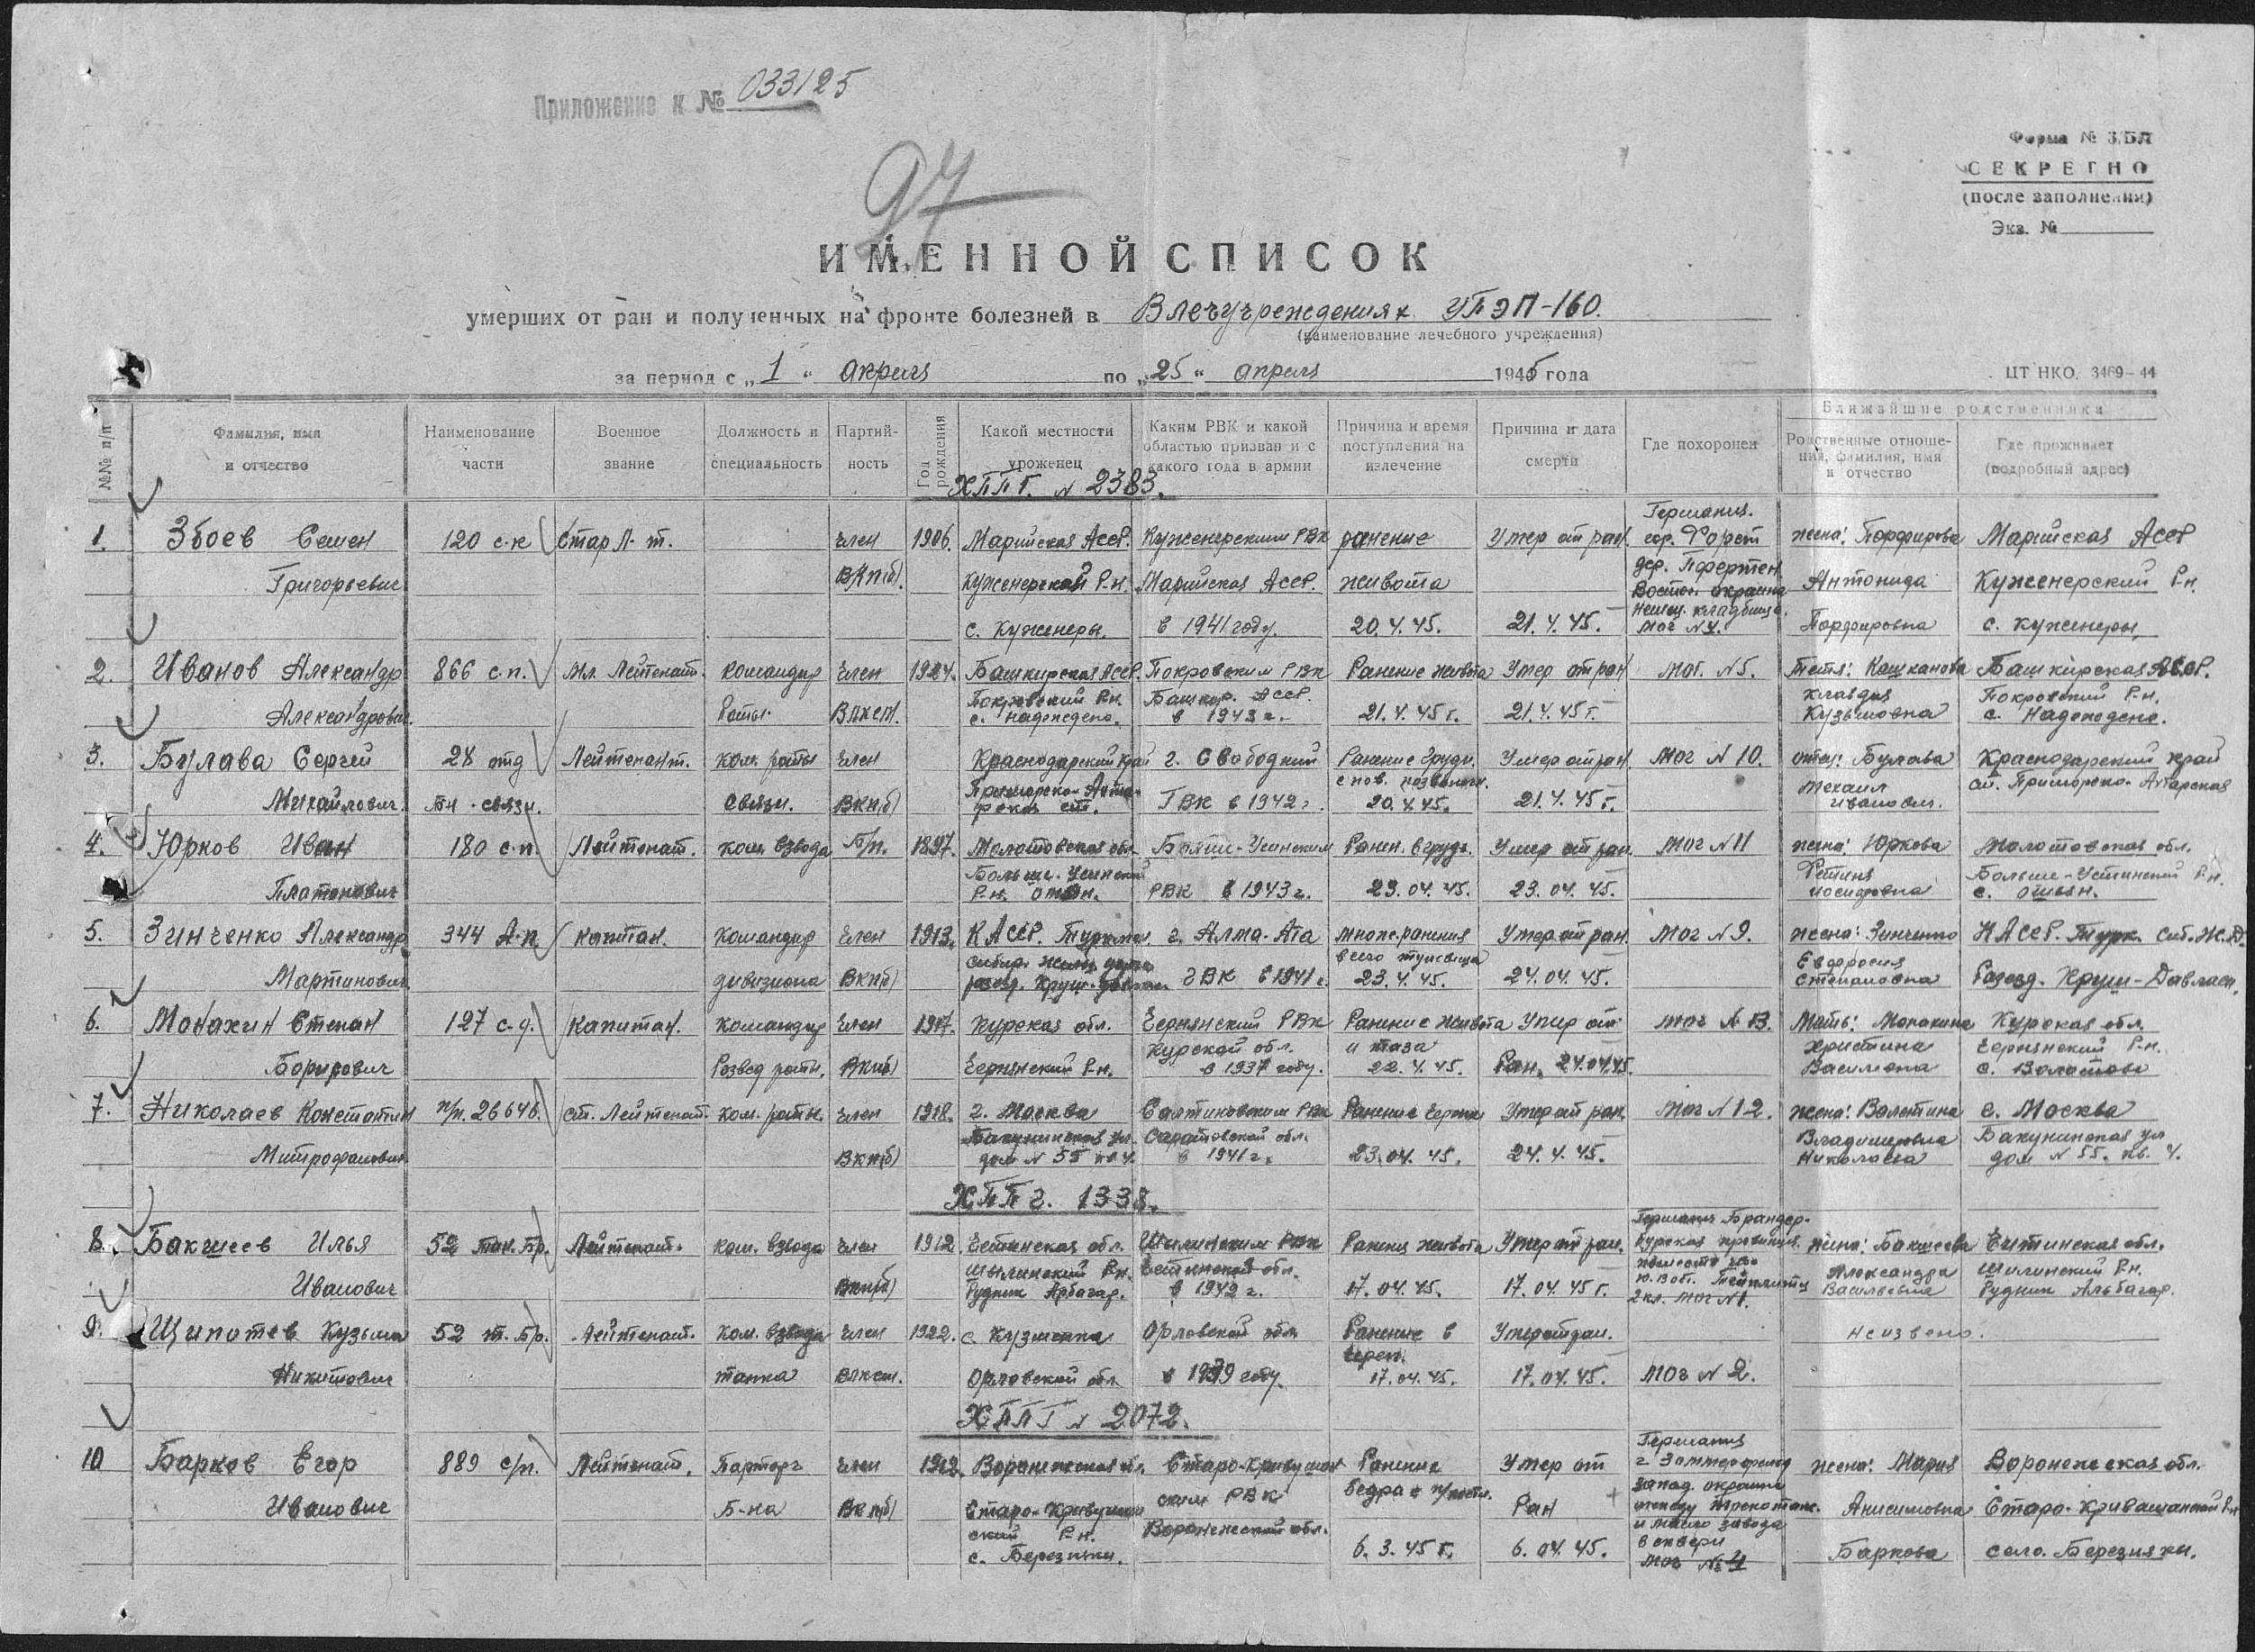 Приложение к № 033125
97
Форма № 3/БЛ
СЕКРЕТНО
(после заполнения)
Экз. №
ИМЕННОЙ СПИСОК
умерших от ран и полученных на фронте болезней в В лечучреждениях УПЭП-160.
(наименование лечебного учреждения)
за период с „1“ апреля по „25“ апреля 1945 года
ЦТ НКО. 3469-44
№№ п/п
Фамилия, имя и отчество
Наименование части
Военное звание
Должность и специальность
Партийность
Год рождения
Какой местности уроженец
Каким РВК и какой областью призван и с какого года в армии
Причина и время поступления на излечение
Причина и дата смерти
Где похоронен
Ближайшие родственники
Родственные отношения, фамилия, имя и отчество
Где проживает (подробный адрес)
ХППГ. N 2383.
1. Збоев Семен 120 с.к Стар Л-т. член 1906. Марийская Асср. Куженерским РВК ранение Умер от ран. Германия. гор. Форст жена: Порфирова Марийская Асср
Григорьевич ВКП(б). Куженерский Р-н. Марийская Асср. живота дер. Восточ. окраина Антонида Куженерский Р-н.
с. Куженеры. в 1941 году. 20.4.45. 21.4.45. Немец. кладбище. Мог N 4. Порфировна с. Куженеры,
2. Иванов Александр 866 с.п. Мл. Лейтенант. командир член 1924. Башкирская Асср. Покровским РВК Ранение живота Умер от ран Мог. N 5. Тетя: Кашканова Башкирская Асср.
Александрович Роты. Влксм. Покровский Р-н. Башкир. Асср. Клавдия Покровский Р-н.
с. Надеждено. в 1943 г. 21.4.45 г. 21.4.45 г. Кузьмовна с. Надеждено.
3. Булава Сергей 28 отд Лейтенант. ком. роты член Краснодарский край г. Свободний Ранение груди. Умер от ран. Мог N 10. отец: Булава Краснодарский край
Михайлович. Бн. связи. связи. ВКП(б) Приморско-Ахтарская ст. ГВК в 1942 г. с пов. позвоночн. 20.4.45. 21.4.45 г. Михаил Иванович. ст. Приморско-Ахтарская
4. Юрков Иван 180 с.п. Лейтенант. ком. взвода Б/п. 1897. Молотовская обл. Больше-Усинским Ранен. в грудь. Умер от ран. Мог N 11 жена: Юркова Молотовская обл.
Платонович Больше-Усинский Р-н. РВК в 1943 г. 23.04.45. 23.04.45. Иосифовна Больше-Устинский Р-н.
5. Зинченко Александр 344 А.п. капитан. командир член 1913. К Асср. Туркест. г. Алма-Ата множ. ранения Умер от ран. Мог N 9. жена: Зинченко К Асср. Турк. сиб. Ж.Д.
Мартинович дивизиона ВКП(б) сибир. ГВК в 1941 г. всего туловища 23.4.45. 24.04.45. Евфросия Степановна
6. Монахин Степан 127 с.д. Капитан. командир член 1917. Курская обл. Чернянский РВК Ранение живота Умер от Мог N 13. Мать: Монахина Курская обл.
Борисович Развед роты. ВКП(б) Чернянский Р-н. Курской обл. в 1937 году. и таза 22.4.45. Ран. 24.04.45. Христина Чернянский Р-н.
7. Николаев Константин п/п. 26646. ст. Лейтенант. ком. роты. член 1918. г. Москва РВК Ранение Умер от ран. Мог N 12. жена: Валентина г. Москва
Митрофанович ВКП(б) Бакунинская ул. дом N 55 кв 4. Саратовской обл. в 1941 г. 23.04.45. 24.4.45. Владимировна Николаева Бакунинская ул дом N 55. кв. 4.
ХППГ. 1338.
8. Бакшеев Илья 52 тан. Бр. Лейтенант. ком. взвода член 1912. Читинская обл. Шылинским РВК Ранение живота Умер от ран. Германия Брандербурская провинция жена: Бакшеева Читинская обл.
Иванович ВКП(б) Шылинский Р-н. Рудник Арбагар. Читинской обл. в 1942 г. 17.04.45. 17.04.45 г. Мог N 1. Александра Васильевна Шилинский Р-н. Рудник Альбагар.
9. Щипотев Кузьма 52 т. Бр. Лейтенант. ком. взвода член 1922. с. Кузменка Орловской обл. Ранение в Умер от ран. неизвено.
Никитович танка Влксм. Орловской обл. в 1939 году. череп. 17.04.45. 17.04.45. Мог N 2.
ХППГ N 2072.
10 Барков Егор 889 с/п. Лейтенант. Парторг член 1912. Воронежская обл. Старо-Кривушанским Ранение Умер от Германия г Зоммерфельд жена: Мария Воронежская обл.
Иванович Б-на ВКП(б) Старо-Кривушанский Р-н. РВК бедра Ран Запад. окраина Анисимовна Старо-Кривашанский Р-н
с. Березняки. Воронежской обл. 6.3.45 г. 6.04.45. и масло завода в сквери Мог N 4 Баркова село. Березняки.